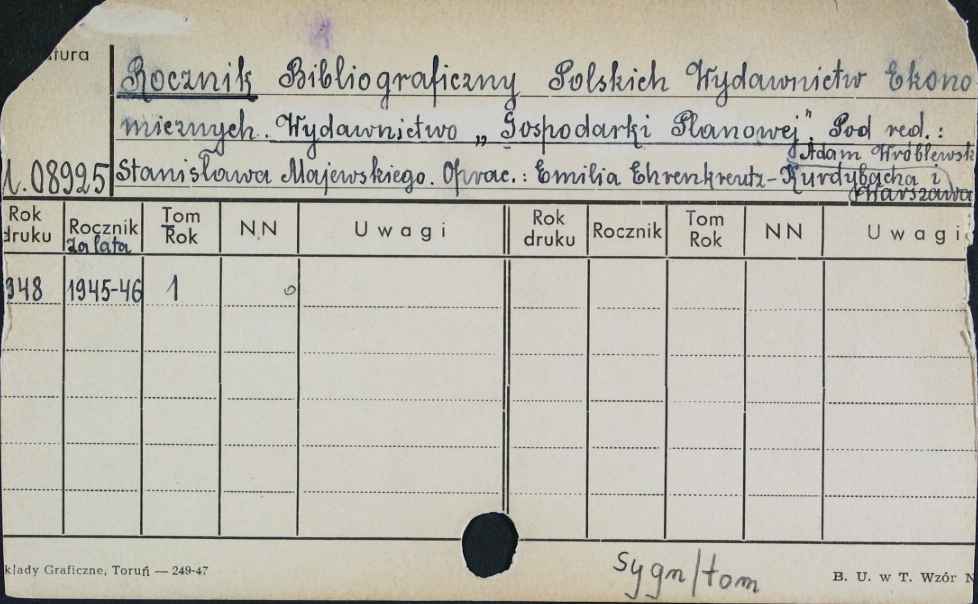 tura
Rocznik Bibliograficzny Polskich Wydawnictw Ekono
micznych. Wydawnictwo „Gospodarki Planowej". Pod red.:
Adam Wróblewski
08925 Stanisława Majewskiego. Oprac.: Emilia Ehrenkreutz-Kurdybacha i
Warszawa
Rok druku Rocznik za lata Tom Rok NN Uwagi Rok druku Rocznik Tom Rok NN Uwagi
948 1945-46 1 0
sygn/tom
kłady Graficzne, Toruń — 249-47 B. U. w T. Wzór N